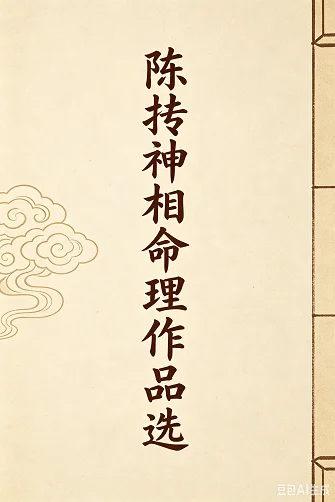 陈抟神相命理作品选
豆包AI生成